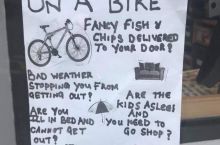 ON A BIKE
FANCY FISH &
CHIPS DELIVERED
TO YOUR DOOR?
BAD WEATHER
STOPPING YOU FROM
GETTING OUT?
ARE THE
KIDS ASLEEP
AND
YOU NEED TO
GO SHOP?
ARE YOU
ILL IN BED AND
CANNOT GET
OUT?